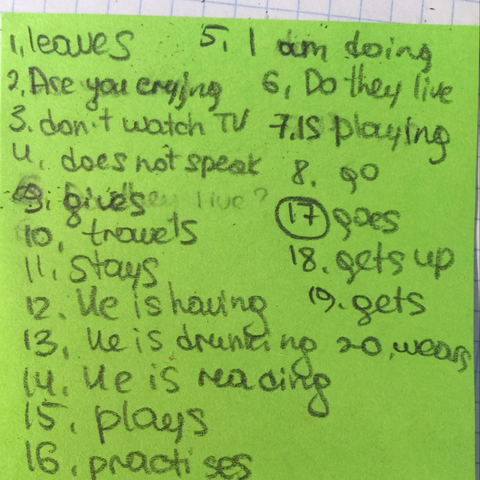 1. leaves
2. Are you crying
3. don't watch TV
4. does not speak
9. gives
10. travels
11. stays
12. He is having
13. He is drunking
14. He is reading
15. plays
16. practises
5. I am doing
6. Do they live
7. is playing
8. go
17 goes
18. gets up
19. gets
20. wears